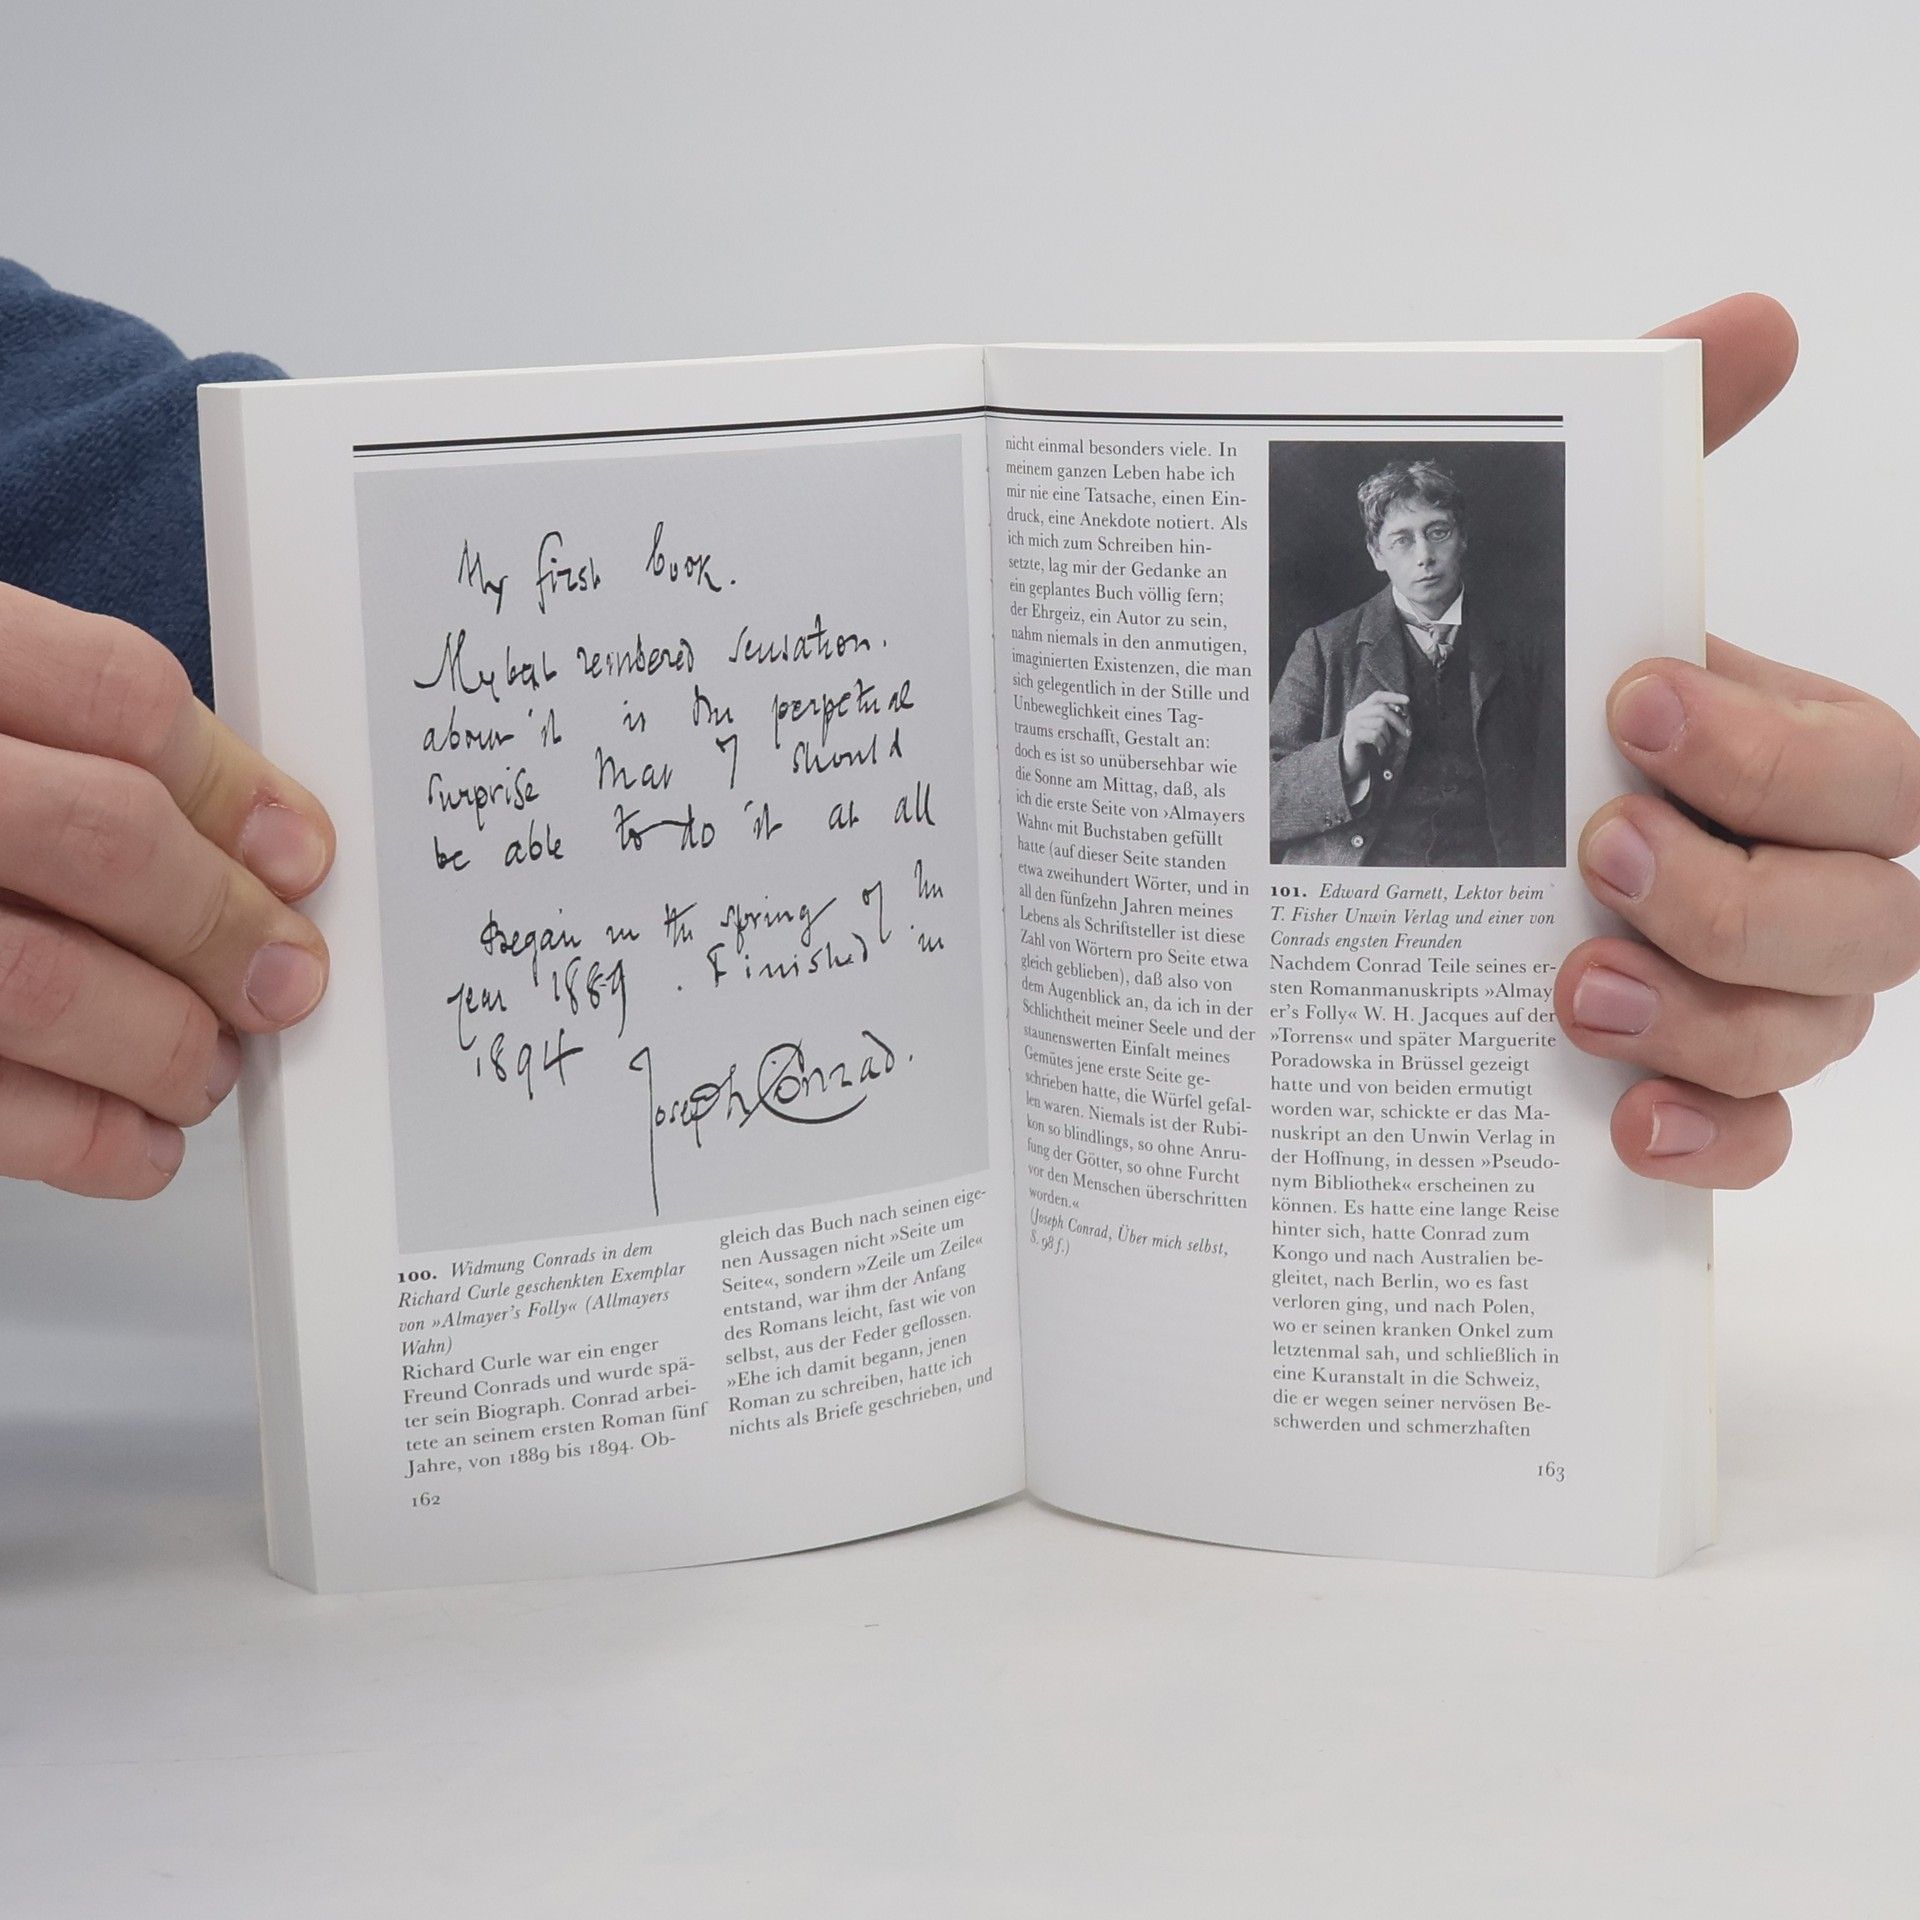 My first book.
My best rembered sensation.
about it is the perpetual
surprise that I should
be able to do it at all
Began in the spring of the
year 1889. Finished in
1894 Joseph Conrad.
100. Widmung Conrads in dem
Richard Curle geschenkten Exemplar
von »Almayer's Folly« (Allmayers
Wahn)
Richard Curle war ein enger
Freund Conrads und wurde spä-
ter sein Biograph. Conrad arbei-
tete an seinem ersten Roman fünf
Jahre, von 1889 bis 1894. Ob-
gleich das Buch nach seinen eige-
nen Aussagen nicht »Seite um
Seite«, sondern »Zeile um Zeile«
entstand, war ihm der Anfang
des Romans leicht, fast wie von
selbst, aus der Feder geflossen.
»Ehe ich damit begann, jenen
Roman zu schreiben, hatte ich
nichts als Briefe geschrieben, und
162
nicht einmal besonders viele. In
meinem ganzen Leben habe ich
mir nie eine Tatsache, einen Ein-
druck, eine Anekdote notiert. Als
ich mich zum Schreiben hin-
setzte, lag mir der Gedanke an
ein geplantes Buch völlig fern;
der Ehrgeiz, ein Autor zu sein,
nahm niemals in den anmutigen,
imaginierten Existenzen, die man
sich gelegentlich in der Stille und
Unbeweglichkeit eines Tag-
traums erschafft, Gestalt an:
doch es ist so unübersehbar wie
die Sonne am Mittag, daß, als
ich die erste Seite von ›Almayers
Wahn‹ mit Buchstaben gefüllt
hatte (auf dieser Seite standen
etwa zweihundert Wörter, und in
all den fünfzehn Jahren meines
Lebens als Schriftsteller ist diese
Zahl von Wörtern pro Seite etwa
gleich geblieben), daß also von
dem Augenblick an, da ich in der
Schlichtheit meiner Seele und der
staunenswerten Einfalt meines
Gemütes jene erste Seite ge-
schrieben hatte, die Würfel gefal-
len waren. Niemals ist der Rubi-
kon so blindlings, so ohne Anru-
fung der Götter, so ohne Furcht
vor den Menschen überschritten
worden.«
(Joseph Conrad, Über mich selbst,
S. 98 f.)
101. Edward Garnett, Lektor beim
T. Fisher Unwin Verlag und einer von
Conrads engsten Freunden
Nachdem Conrad Teile seines er-
sten Romanmanuskripts »Almay
er's Folly« W. H. Jacques auf der
»Torrens« und später Marguerite
Poradowska in Brüssel gezeigt
hatte und von beiden ermutigt
worden war, schickte er das Ma-
nuskript an den Unwin Verlag in
der Hoffnung, in dessen »Pseudo-
nym Bibliothek« erscheinen zu
können. Es hatte eine lange Reise
hinter sich, hatte Conrad zum
Kongo und nach Australien be-
gleitet, nach Berlin, wo es fast
verloren ging, und nach Polen,
wo er seinen kranken Onkel zum
letztenmal sah, und schließlich in
eine Kuranstalt in die Schweiz,
die er wegen seiner nervösen Be-
schwerden und schmerzhaften
163